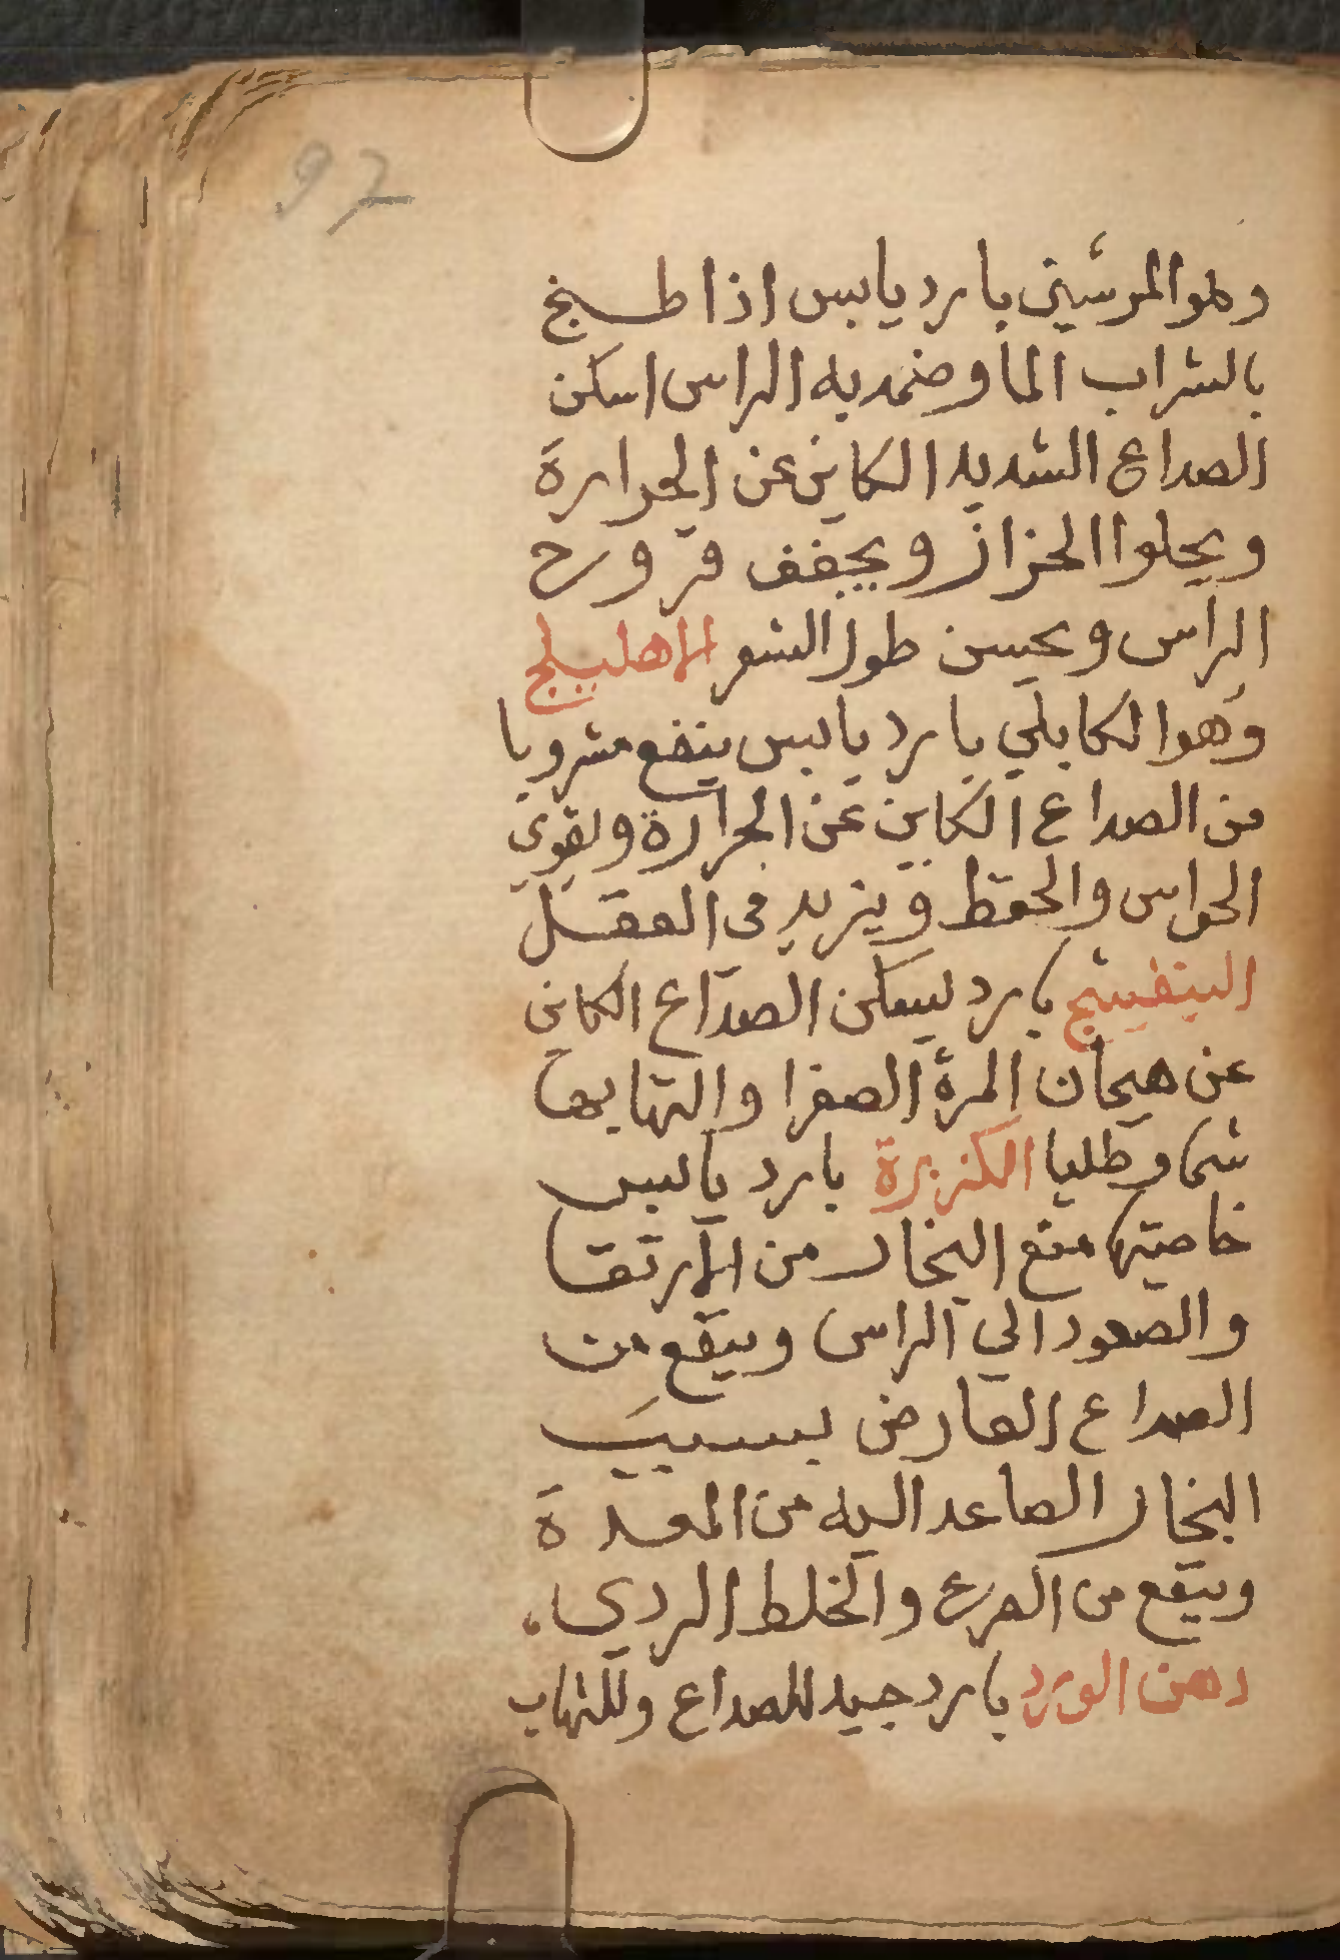 97
وهو المرسين بارد يابس اذا طبخ
بالشراب الما وضمد به الراس اسكن
الصداع الشديد الكاين عن الحرارة
ويجلوا الحزاز ويجفف قروح
الراس ويحسن طول الشعر الاهليلج
وهو الكابلي بارد يابس ينفع مشروبا
من الصداع الكاين عن الحرارة ويقوي
الحواس والحفظ ويزيد فى العقل
البنفسج بارد يسكن الصداع الكاين
عن هيجان المرة الصفرا والتهابها
شما وطليا الكزبرة بارد يابس
خاصيتها منع البخار من الارتقا
والصعود الي الراس وينفع من
الصداع العارض بسبب
البخار الصاعد اليه من المعدة
وينفع من الصرع والخلط الردي
دهن الورد بارد جيد للصداع وللتهاب